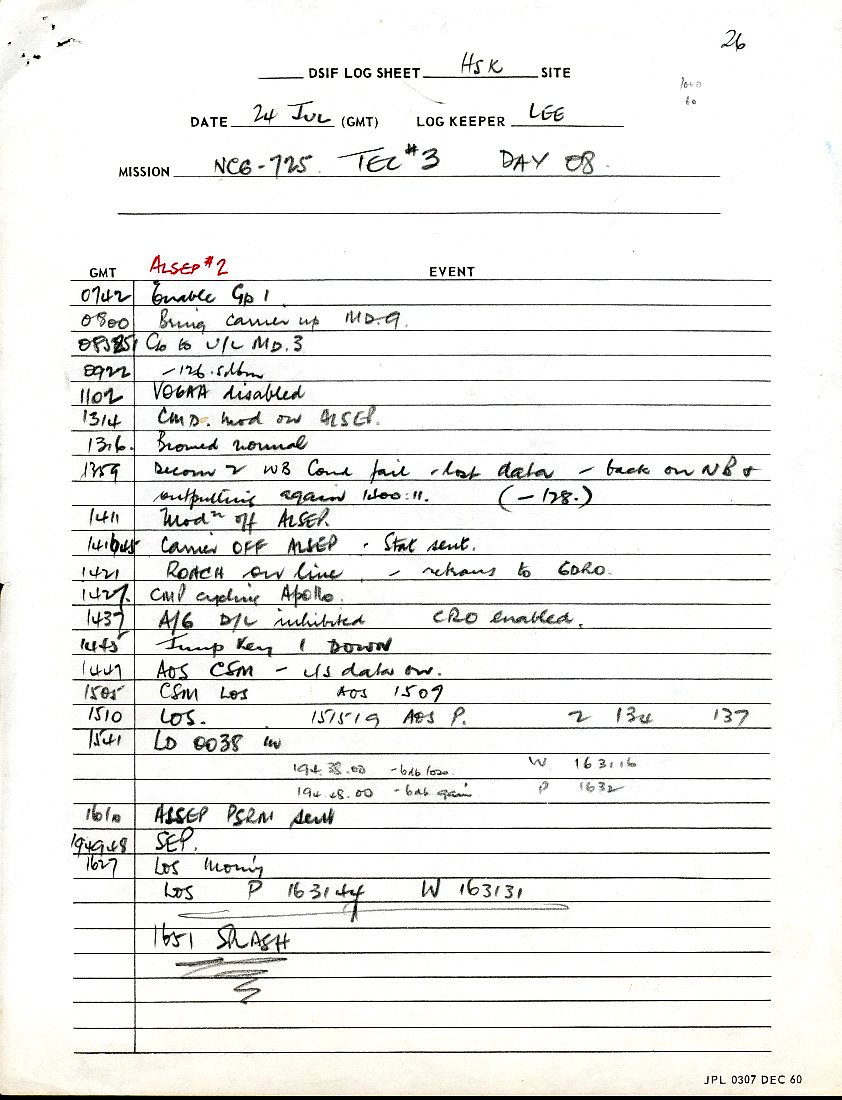 26
DSIF LOG SHEET HSK SITE
DATE 24 JUL (GMT) LOG KEEPER LEE
60
MISSION NCG-725. TEC #3 DAY 08.
GMT ALSEP #2 EVENT
0742 Enable Gp 1
0800 Bring carrier up MD.9.
C/o to U/L MD.3
0922 -126.5dbm
1102 VOGAA disabled
1314 CMD. mod on ALSEP.
1316. normal
1359 Decom 2 WB Cond fail - lost data - back on NB &
outputting again 1400:11. (-128.)
1411 Modn off ALSEP.
Carrier OFF ALSEP. Stat sent.
1421 ROACH on line - retrans to GDRO.
1427 CMP cycling Apollo.
1437 A/G D/L inhibited CRO enabled.
1445 Jump Key 1 DOWN
1447 AOS CSM - data on.
1505 CSM LOS AOS 1509
1510 LOS. 151519 AOS P. 2 134 137
1541 LD 0038 in
194.38.00 -6db loss. W 163116
194.48.00 -6db gain P 1632
1610 ALSEP PSRM sent
194948 SEP.
1627 LOS
LOS P 163144 W 163131
1651 SPLASH
JPL 0307 DEC 60